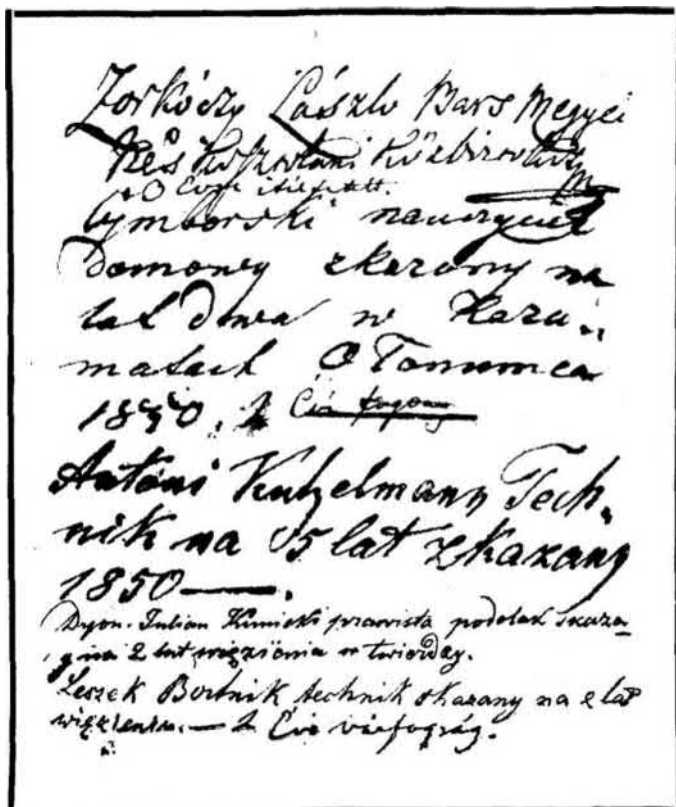 Zorkóczy László Bars Megyei
és
Cymborski nauczyciel
domowy zkazany na
lat dwa w Kaza„
matach Ołomuńca
1850. 2 Évi fogság
Antoni Kutzelmann Tech„
nik na 5 lat zkazany
1850 —.
Dyon. Julian Kunicki prawista podolak skaza„
y na 2 lat więzienia w twierdzy.
Leszek Bortnik technik skazany na 2 lat
więzienia. — 2 Évi várfogság.